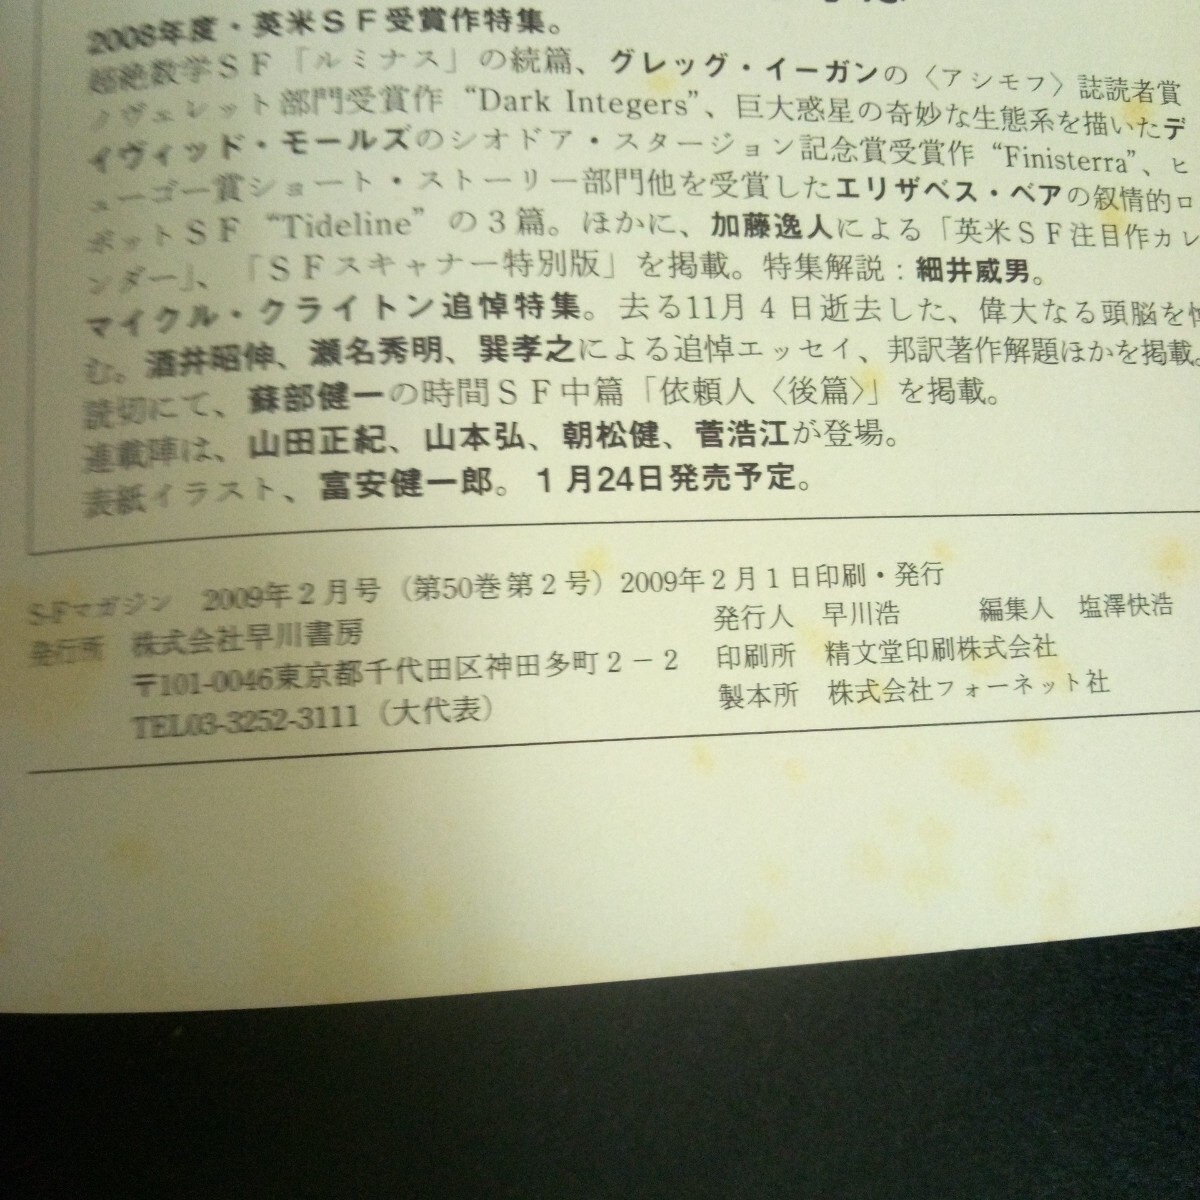 2008年度・英米ＳＦ受賞作特集。
超絶数学ＳＦ「ルミナス」の続篇、グレッグ・イーガンの〈アシモフ〉誌読者賞
ノヴェレット部門受賞作“Dark Integers”、巨大惑星の奇妙な生態系を描いたデ
イヴィッド・モールズのシオドア・スタージョン記念賞受賞作“Finisterra”、ヒ
ューゴー賞ショート・ストーリー部門他を受賞したエリザベス・ベアの叙情的ロ
ボットＳＦ“Tideline”の３篇。ほかに、加藤逸人による「英米ＳＦ注目作カレ
ンダー」、「ＳＦスキャナー特別版」を掲載。特集解説：細井威男。
マイクル・クライトン追悼特集。去る11月４日逝去した、偉大なる頭脳を悼
む。酒井昭伸、瀬名秀明、巽孝之による追悼エッセイ、邦訳著作解題ほかを掲載。
読切にて、蘇部健一の時間ＳＦ中篇「依頼人〈後篇〉」を掲載。
連載陣は、山田正紀、山本弘、朝松健、菅浩江が登場。
表紙イラスト、富安健一郎。１月24日発売予定。
S-Fマガジン　2009年２月号（第50巻第２号）2009年２月１日印刷・発行
発行所　株式会社早川書房
〒101-0046東京都千代田区神田多町２－２
TEL03-3252-3111（大代表）
発行人　早川浩　　編集人　塩澤快浩
印刷所　精文堂印刷株式会社
製本所　株式会社フォーネット社